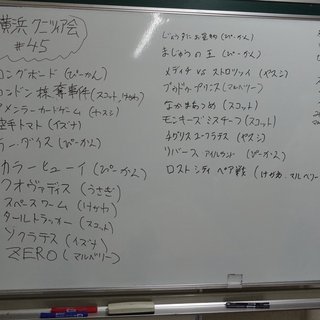 横浜クニツィア会
#45
ロングボード(ぴーかん)
ンドン株奪事件(スコット,けがわ)
メンラーカードゲーム(ヤスシ)
空手トマト(イズナ)
ラーダイス(ぴーかん)
カラーヒューイ(ぴーかん)
クオヴァディス(うさぎ)
スペースワーム(けがわ)
タールトラッカー(スコット)
ソクラテス(イズナ)
ZERO(マルベリー)
じゅうすにお宝物(ぴーかん)
まじょうの王(ぴーかん)
メディチ VS ストロッツィ(ヤスシ)
ブルドッグプリンス(マルベリー)
なかまあつめ(スコット)
モンキーズミスチーフ(スコット)
チグリスユーフラテス(ヤスシ)
リバースアイルランド(ぴーかん)
ロストシティ ペア戦(けがわ,マルベリー